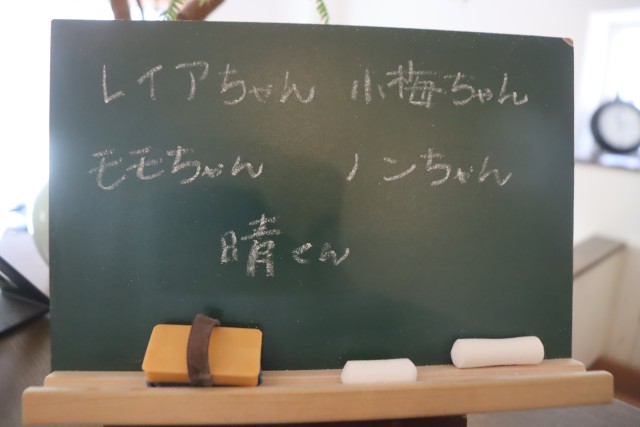 レイアちゃん 小梅ちゃん
モモちゃん ノンちゃん
晴くん